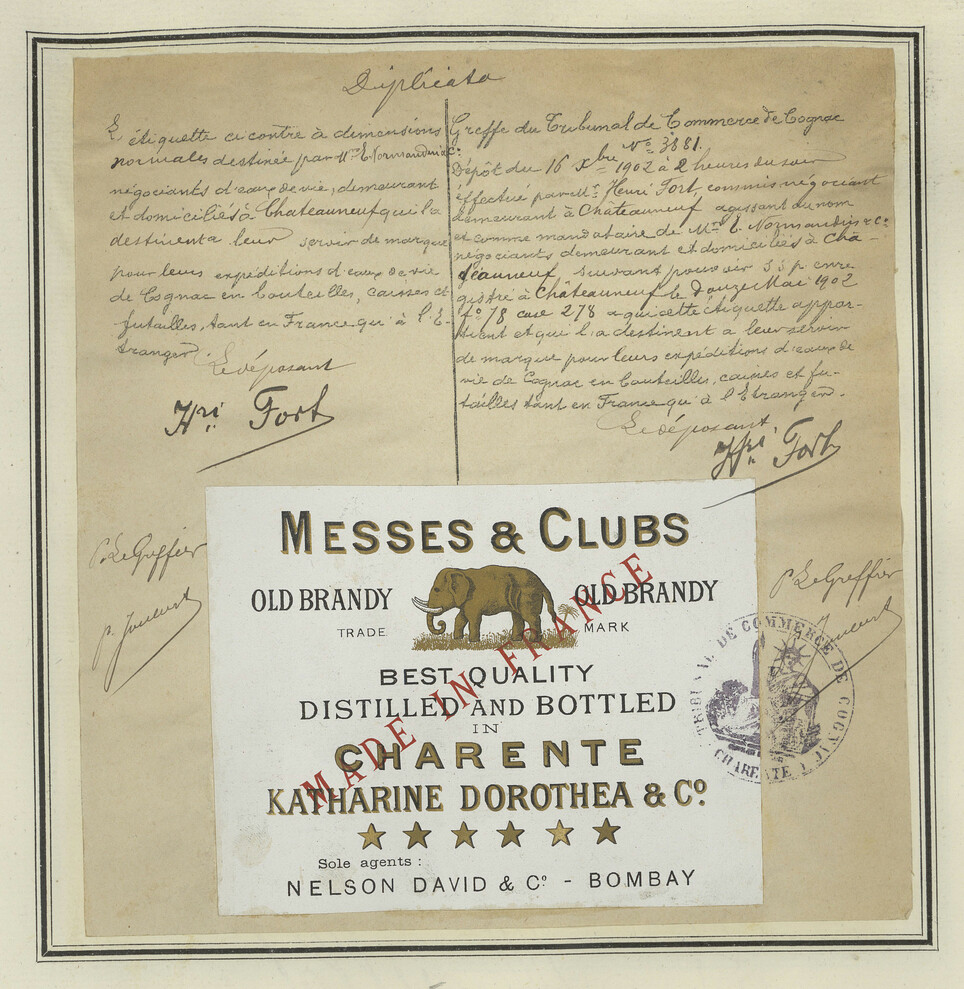 Duplicata
L'étiquette ci contre à dimensions
normales destinée par Mrs E. Normandin & Cie
négociants d'eaux de vie, demeurant
et domiciliés à Chateauneuf qu'ila
destinent a leur servir de marque
pour leurs expéditions d'eaux de vie
de Cognac en bouteilles, caisses et
futailles, tant en France qu'à l'É-
tranger.
Le déposant
Hri Fort
Greffe du Tribunal de Commerce de Cognac
No 3881.
Dépôt du 16 Xbre 1902 à 2 heures du soir
effectué par Mr Henri Fort, commis négociant
demeurant à Châteauneuf agissant au nom
et comme mandataire de Mrs E. Normandin & Cie
négociants demeurant et domiciliés à Châ-
teauneuf, suivant pouvoir s.s.p. enre
gistré à Châteauneuf le douze Mai 1902
fo 78 case 278 a qui cette étiquette appar-
tient et qui l'a destinent a leur servir
de marque pour leurs expéditions d'eaux de
vie de Cognac en bouteilles, caisses et fu-
tailles tant en France qu'à l'Etranger.
Le déposant,
Hri Fort
P. Le Greffier
P. Le Greffier
MESSES & CLUBS
OLD BRANDY OLD BRANDY
TRADE MARK
MADE IN FRANCE
BEST QUALITY
DISTILLED AND BOTTLED
IN
CHARENTE
KATHARINE DOROTHEA & Co
Sole agents :
NELSON DAVID & Co - BOMBAY
TRIBUNAL DE COMMERCE DE COGNAC
CHARENTE